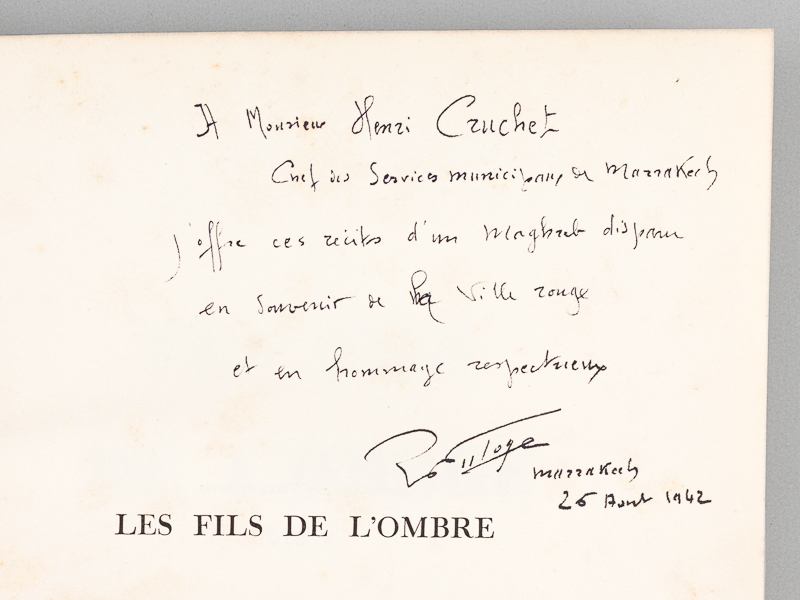 A Monsieur Henri Cruchet
Chef des Services municipaux de Marrakech
j'offre ces récits d'un Maghreb disparu
en souvenir de la Ville rouge
et en hommage respectueux
Marrakech
26 Aout 1942
LES FILS DE L'OMBRE